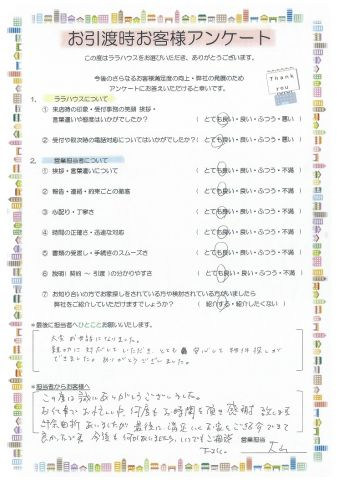 お引渡時お客様アンケート
この度はララハウスをお選びいただき、ありがとうございます。
今後のさらなるお客様満足度の向上・弊社の発展のため
アンケートにお答えいただけると幸いです。
Thank you
1. ララハウスについて
① 来店時の印象・受付事務の笑顔 挨拶・
言葉遣いや態度はいかがでしたか? ( とても良い・良い・ふつう・悪い )
② 受付や取次時の電話対応についてはいかがでしたか? ( とても良い・良い・ふつう・悪い )
2. 営業担当者について
① 挨拶・言葉遣いについて ( とても良い・良い・ふつう・不満 )
② 報告・連絡・約束ごとの厳客 ( とても良い・良い・ふつう・不満 )
③ 心配り・丁寧さ ( とても良い・良い・ふつう・不満 )
④ 時間の正確さ・迅速な対応 ( とても良い・良い・ふつう・不満 )
⑤ 書類の受渡し・手続きのスムーズさ ( とても良い・良い・ふつう・不満 )
⑥ 説明(契約 ～ 引渡)の分かりやすさ ( とても良い・良い・ふつう・不満 )
⑦ お知り合いの方でお家探しをされている方や検討されている方がいましたら
弊社をご紹介していただけますでしょうか? ( 紹介する・紹介したくない )
*最後に担当者へひとことお願いいたします。
大変お世話になりました。
親切に対応していただき、とても 安心して物件探しが
できました。ありがとうございました。
*担当者からお客様へ
この度は誠にありがとうございました。
お仕事でお忙しい中、何度もお時間を頂き感謝
最後に満足して
良かったです 今後も何かありましたら、いつでもご相談
下さい。
営業担当